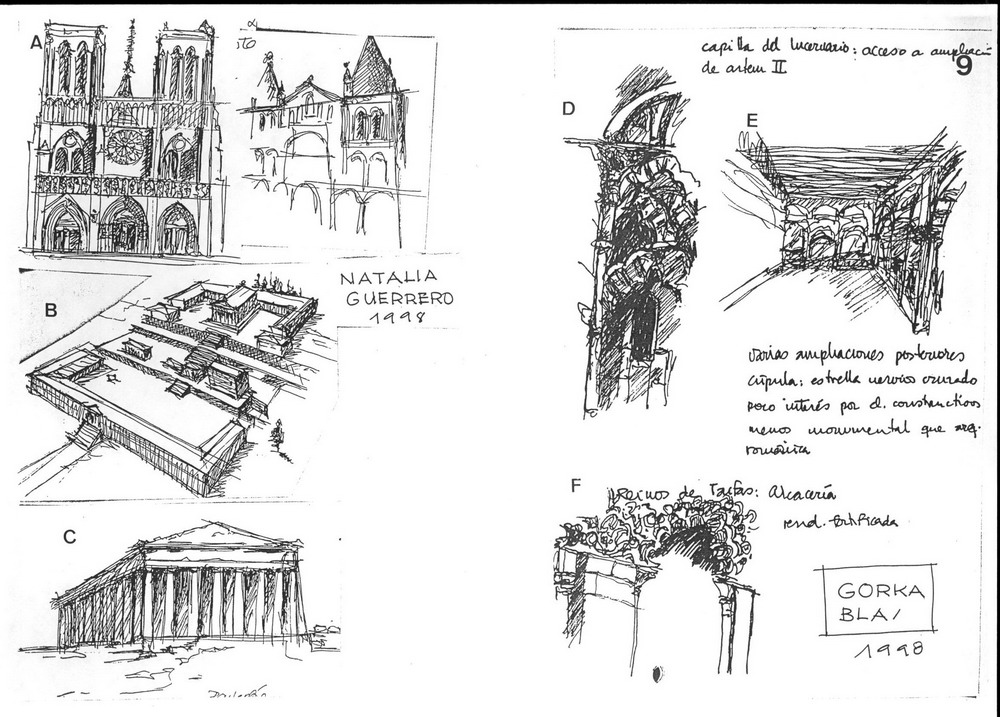 A
B
NATALIA
GUERRERO
1998
C
9
capilla del lucernario: acceso a ampliación
de artem II
D
E
varias ampliaciones posteriores
cúpula: estrella nervios cruzado
poco interés por el. constructivos
menos monumental que arq.
románica
F
Reinos de Taifas: Alcacería
rend. fortificada
GORKA
BLAI
1998